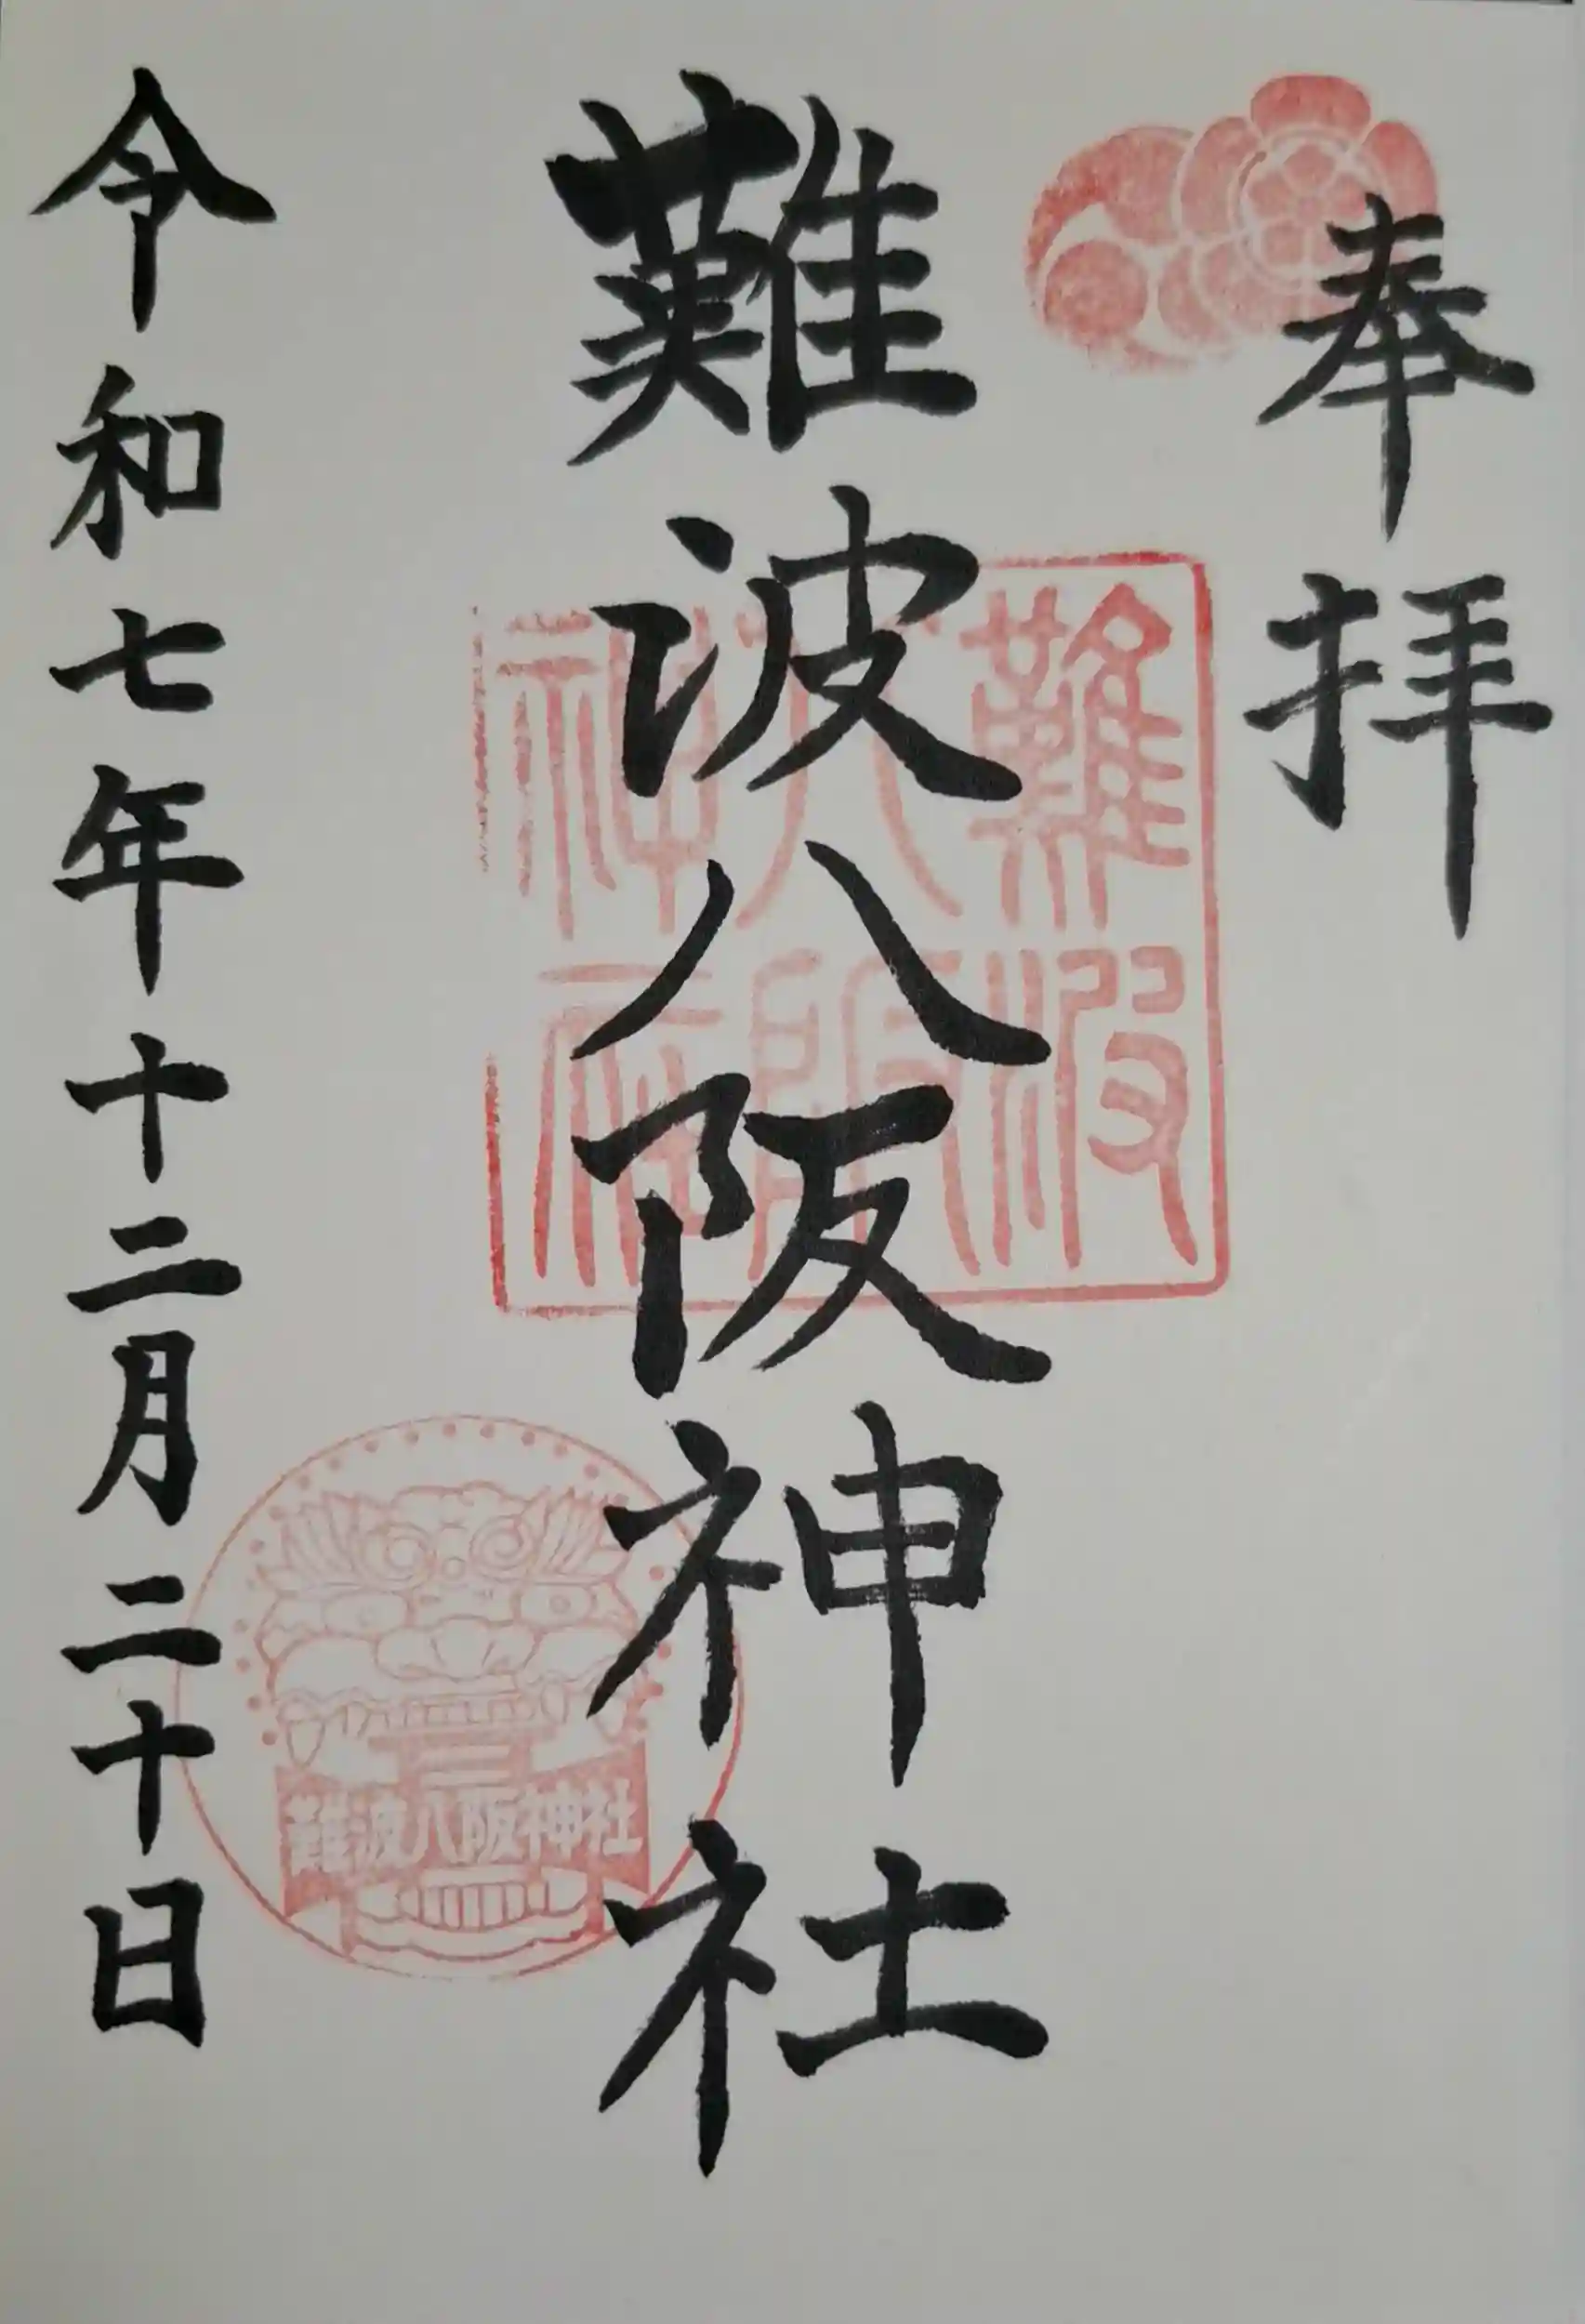 奉拝
難波八阪神社
難波
八阪
神社
難波八阪神社
令和七年十二月二十日